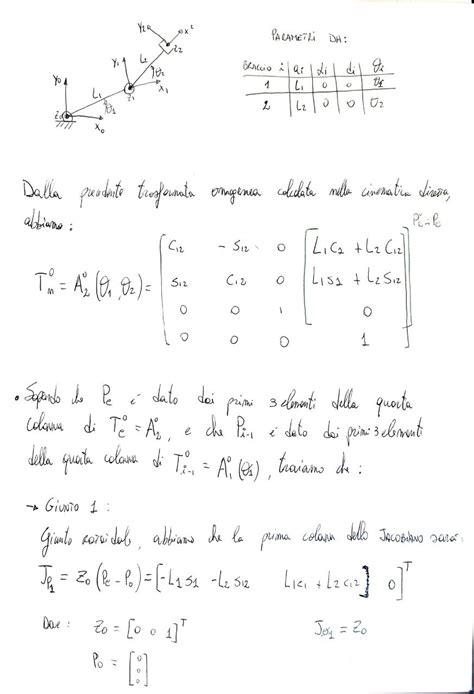 PARAMETRI DH:
Y2 x2
z2
L2
Y1
Y0 ϑ2
L1 z1 X1
ϑ1
z0 X0
BRACCIO i | ai | αi | di | ϑi
1 | L1 | 0 | 0 | ϑ1
2 | L2 | 0 | 0 | ϑ2
Dalla precedente trasformata omogenea calcolata nella cinematica diretta,
abbiamo:
C12 -S12 0 L1C2 + L2C12
T_n^0 = A_2^0 (ϑ1, ϑ2) = S12 C12 0 L1S1 + L2S12
0 0 1 0
0 0 0 1
• Sapendo che Pe è dato dai primi 3 elementi della quarta
colonna di T_e^0 = A_2^0, e che Pi-1 è dato dai primi 3 elementi
della quarta colonna di T_{i-1}^0 = A_1^0 (ϑ1), troviamo che:
→ GIUNTO 1:
Giunto rotoidale, abbiamo che la prima colonna dello JACOBIANO sarà:
J_{P1} = Z0 (Pe - P0) = [-L1S1 -L2S12 L1C1 + L2C12] 0]^T
Dove: Z0 = [0 0 1]^T J_{O1} = Z0
P0 = [0 0 0]